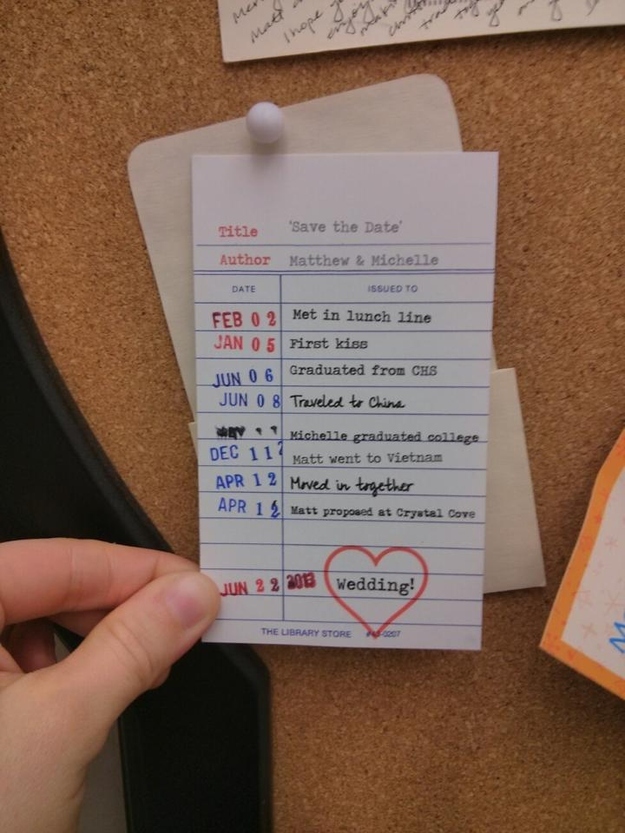 Title 'Save the Date'
Author Matthew & Michelle
DATE ISSUED TO
FEB 02 Met in lunch line
JAN 05 First kiss
JUN 06 Graduated from CHS
JUN 08 Traveled to China
Michelle graduated college
DEC 11 Matt went to Vietnam
APR 12 Moved in together
APR 12 Matt proposed at Crystal Cove
JUN 22 2013 Wedding!
THE LIBRARY STORE #40-0207